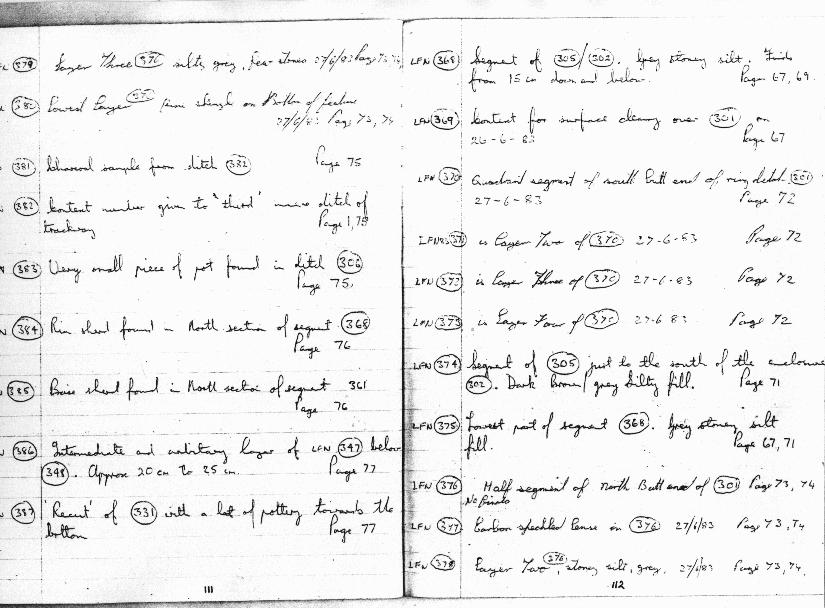 379 Layer Three 376 silts, grey. Few stones 27/6/83 Page 73, 74
380 Lowest Layer on Bottom of feature
27/6/83 Page 73, 74
381 Charcoal sample from ditch 382 Page 75
382 Context number given to "third" ditch of
trackway Page 1, 75
N 383 Very small piece of pot found in ditch 306
Page 75.
N 384 Rim sherd found in North section of segment 368
Page 76
385 Base sherd found in North section of segment 361
Page 76
N 386 Intermediate and arbitrary layer of LFN 347 below
348. Approx 20 cm to 25 cm. Page 77
N 387 'Recut' of 331 with a lot of pottery towards the
bottom Page 77
111
LFN 368 Segment of 305/302. Grey stoney silt. Finds
from 15 cm down and below. Page 67, 69.
LFN 369 Context for surface cleaning over 301 on
26-6-83 Page 67
LFN 370 Quadrant segment of south butt end of ring ditch 301
27-6-83 Page 72
LFN 371 is Layer Two of 370 27-6-83 Page 72
LFN 372 is Layer Three of 370 27-6-83 Page 72
LFN 373 is Layer Four of 370 27-6 83 Page 72
LFN 374 Segment of 305 just to the south of the enclosure
302. Dark Brown/grey silty fill. Page 71
LFN 375 Lowest part of segment 368. Grey stoney silt
fill. Page 67, 71
LFN 376 Half segment of North Butt end of 301 Page 73, 74
No Finds
LFN 377 Carbon speckled lense in 376 27/6/83 Page 73, 74
LFN 378 Layer Two 376, stoney silt, grey. 27/6/83 Page 73, 74.
112